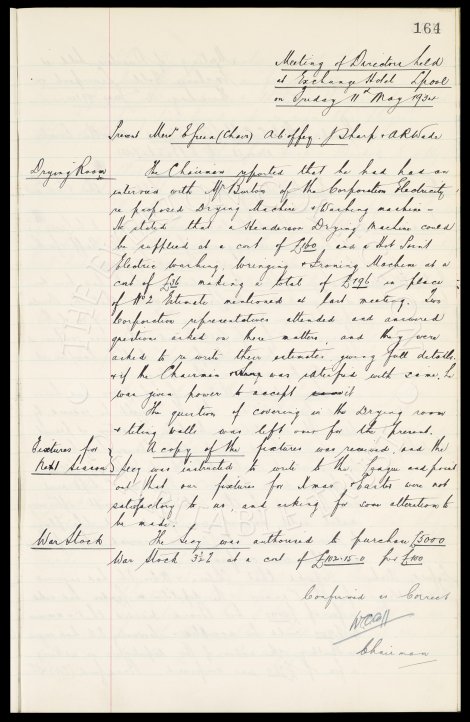 164
Meeting of Directors held
at Exchange Hotel Lpool
on Friday 11th May 1934
Present Messrs E Green (Chair) A Coffey. J Sharp & A R Wade
Drying Room
The Chairman reported that he had had an
interview with Mr Burton of the Corporation Electricity
re proposed Drying Machine & Washing machine -
He stated that a Henderson Drying machine could
be supplied at a cost of £160 and a Hot Point
Electric washing, Wringing & Ironing Machine at a
cost of £36 making a total of £196 in place
of No 2 Estimate mentioned at last meeting. Two
Corporation representatives attended and answered
questions asked on these matters, and they were
asked to re write their estimates giving full details.
& if the Chairman was satisfied with same, he
was given power to accept it
The question of covering in the Drying room
& tiling walls was left over for the present.
Fixtures for
Next Season
A copy of the fixtures was received, and the
Secy was instructed to write to the League and point
out that our fixtures for Xmas & Easter were not
satisfactory to us, and asking for some alteration to
be made.
War Stock
The Secy was authorised to purchase £3000
War Stock 3½% at a cost of £102-15-0 per £100
Confirmed as Correct
W C Cuff
Chairman